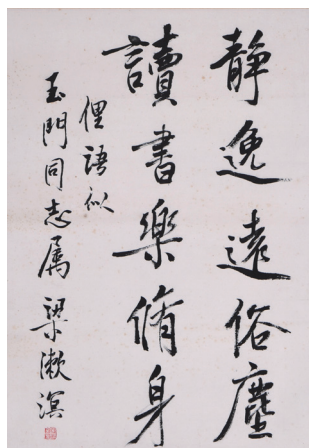 静逸遠俗塵
讀書樂脩身
俚語似
玉門同志属 梁漱溟